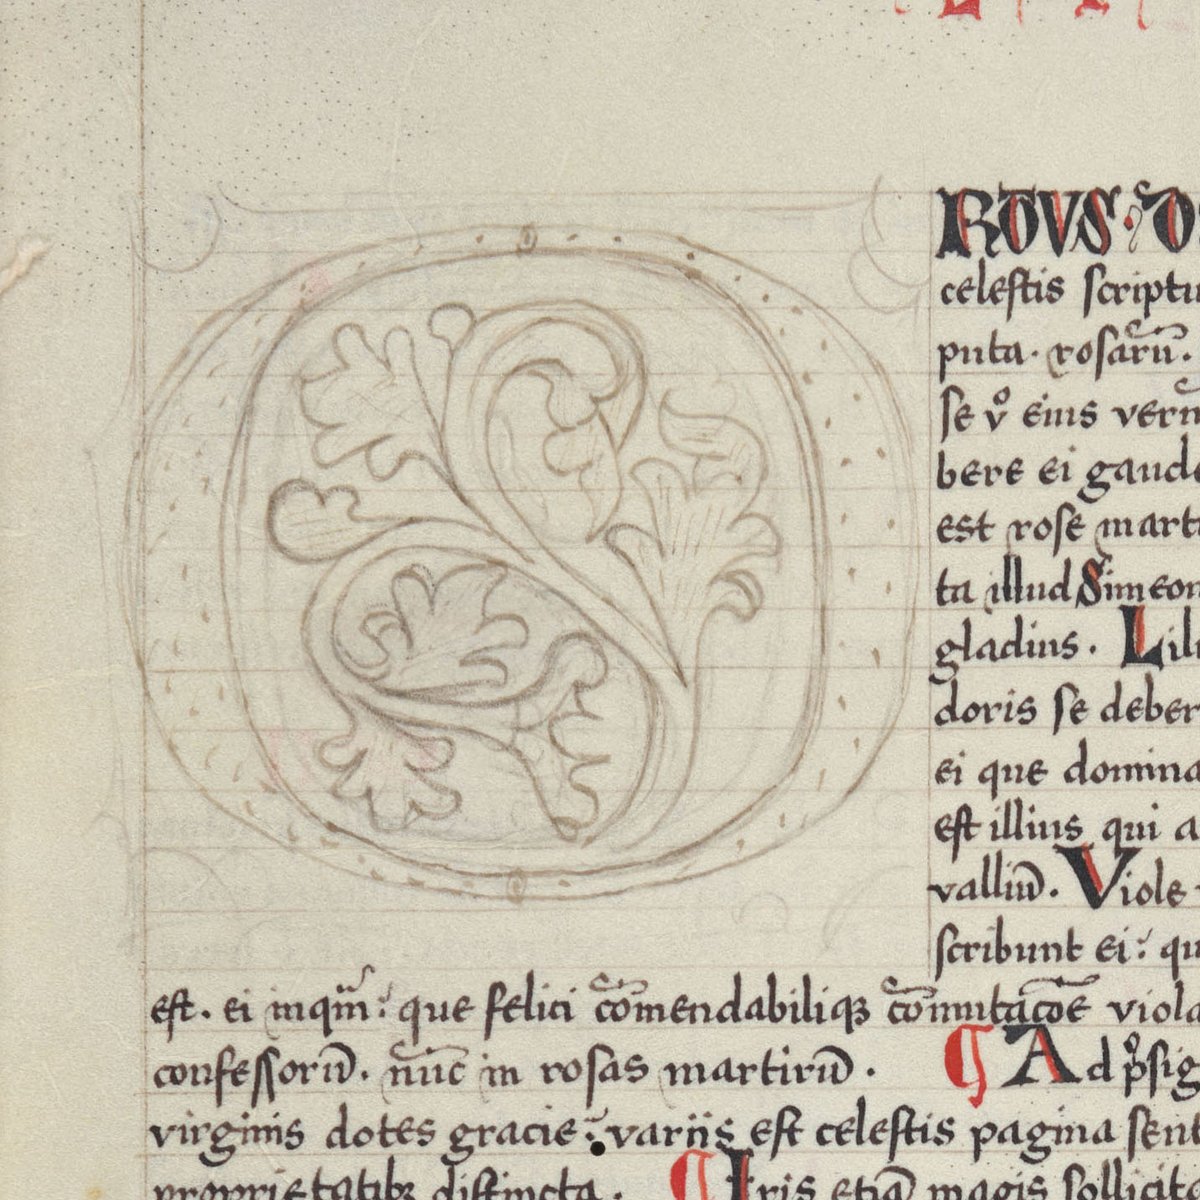 RTVS · D
celestis scriptu
puta · rosarũ ·
se vͦ eius verũ
bere ei gaude
est rose marti
ta illud Simeon
gladius . Lili
doris se deber
ei que domina
est illius qui a
valliũ . Viole
scribunt ei : qu
est . ei inqm̃ : que felici cõmendabiliqꝫ cõmutacõe viola
confessorũ . nũc in rosas martirũ . ¶ Ad pͦsig
virginis dotes gracie : variis est celestis pagina sent
proprietatibꝫ distincta . ¶ Iris etiã magis sollicite